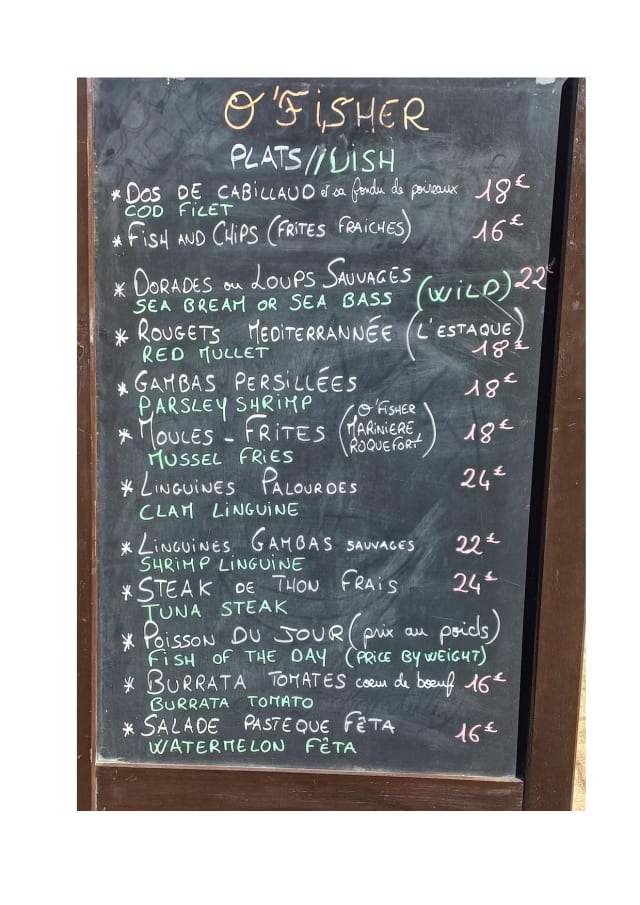 O'FiSHER
PLATS//DISH
* DOS DE CABILLAUD et sa fondu de poireaux 18€
COD FILET
* FISH AND CHIPS (FRITES FRAICHES) 16€
* DORADES ou LOUPS SAUVAGES 22€
SEA BREAM OR SEA BASS (WILD)
* ROUGETS MEDITERRANNÉE (L'ESTAQUE)
RED MULLET 18€
* GAMBAS PERSILLÉES 18€
PARSLEY SHRIMP
* MOULES - FRITES (O'FISHER MARINIERE ROQUEFORT) 18€
MUSSEL FRIES
* LINGUINES PALOURDES 24€
CLAM LINGUINE
* LINGUINES GAMBAS SAUVAGES 22€
SHRIMP LINGUINE
* STEAK DE THON FRAIS 24€
TUNA STEAK
* POISSON DU JOUR (prix au poids)
FISH OF THE DAY (PRICE BY WEIGHT)
* BURRATA TOMATES coeur de boeuf 16€
BURRATA TOMATO
* SALADE PASTEQUE FÊTA 16€
WATERMELON FÊTA